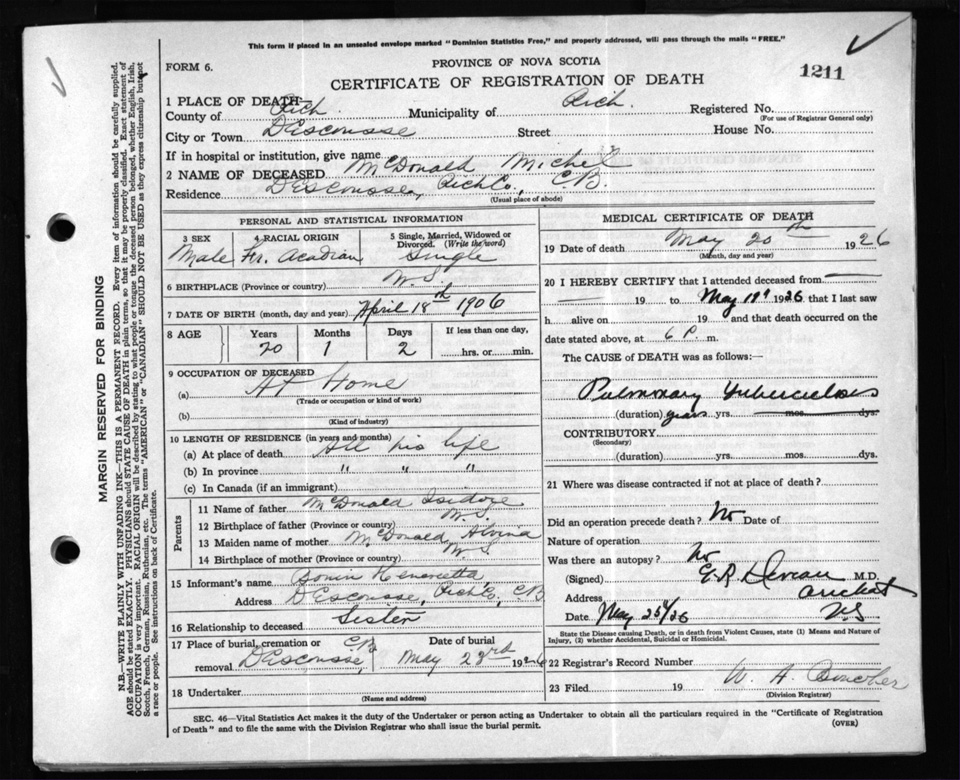 This form if placed in an unsealed envelope marked "Dominion Statistics Free," and properly addressed, will pass through the mails "FREE."
FORM 6.
PROVINCE OF NOVA SCOTIA
CERTIFICATE OF REGISTRATION OF DEATH
1211
1 PLACE OF DEATH—
County of Rich. Municipality of Rich. Registered No.
(For use of Registrar General only)
City or Town D'Escousse Street House No.
If in hospital or institution, give name
2 NAME OF DECEASED McDonald Michel
Residence D'Escousse, Rich Co., C.B.
(Usual place of abode)
PERSONAL AND STATISTICAL INFORMATION
3 SEX Male
4 RACIAL ORIGIN Fr. Acadian
5 Single, Married, Widowed or Divorced. (Write the word) Single
6 BIRTHPLACE (Province or country) N.S.
7 DATE OF BIRTH (month, day and year) April 18th 1906
8 AGE Years Months Days If less than one day,
20 1 2 hrs. or min.
9 OCCUPATION OF DECEASED
(a) At Home
(Trade or occupation or kind of work)
(b)
(Kind of industry)
10 LENGTH OF RESIDENCE (in years and months)
(a) At place of death All his life
(b) In province " " "
(c) In Canada (if an immigrant)
Parents
11 Name of father McDonald Isidore
12 Birthplace of father (Province or country) N.S.
13 Maiden name of mother McDonald,
14 Birthplace of mother (Province or country) N.S.
15 Informant's name Bonin Henrietta,
Address D'Escousse, Rich Co., C.B.
16 Relationship to deceased Sister
17 Place of burial, cremation or removal D'Escousse, C.B.
Date of burial May 23rd 1926
18 Undertaker
(Name and address)
MEDICAL CERTIFICATE OF DEATH
19 Date of death May 20th 1926
(Month, day and year)
20 I HEREBY CERTIFY that I attended deceased from
19 to May 19th 1926 that I last saw
h alive on 19 and that death occurred on the
date stated above, at 6 P. m.
The CAUSE of DEATH was as follows:—
Pulmonary Tuberculosis
(duration) years yrs. mos. dys.
CONTRIBUTORY
(Secondary)
(duration) yrs. mos. dys.
21 Where was disease contracted if not at place of death?
Did an operation precede death? No Date of
Nature of operation
Was there an autopsy? No
(Signed) G. R. Deveau M.D.
Address Arichat
Date May 25/26 N.S
State the Disease causing Death, or in death from Violent Causes, state (1) Means and Nature of Injury, (2) whether Accidental, Suicidal or Homicidal.
22 Registrar's Record Number
23 Filed 19 W. A.
(Division Registrar)
SEC. 46—Vital Statistics Act makes it the duty of the Undertaker or person acting as Undertaker to obtain all the particulars required in the "Certificate of Registration
of Death" and to file the same with the Division Registrar who shall issue the burial permit.
(OVER)
MARGIN RESERVED FOR BINDING
N.B.—WRITE PLAINLY WITH UNFADING INK—THIS IS A PERMANENT RECORD. Every item of information should be carefully supplied.
AGE should be stated EXACTLY. PHYSICIANS should STATE CAUSE OF DEATH in plain terms, so that it may be properly classified. Exact statement of
OCCUPATION is very important. RACIAL ORIGIN will be described by stating to what people or tongue the deceased person belonged, whether English, Irish,
Scotch, French, German, Russian, Ruthenian, etc. The terms "AMERICAN" or "CANADIAN" SHOULD NOT BE USED as they express citizenship but not
a race or people. See instructions on back of Certificate.